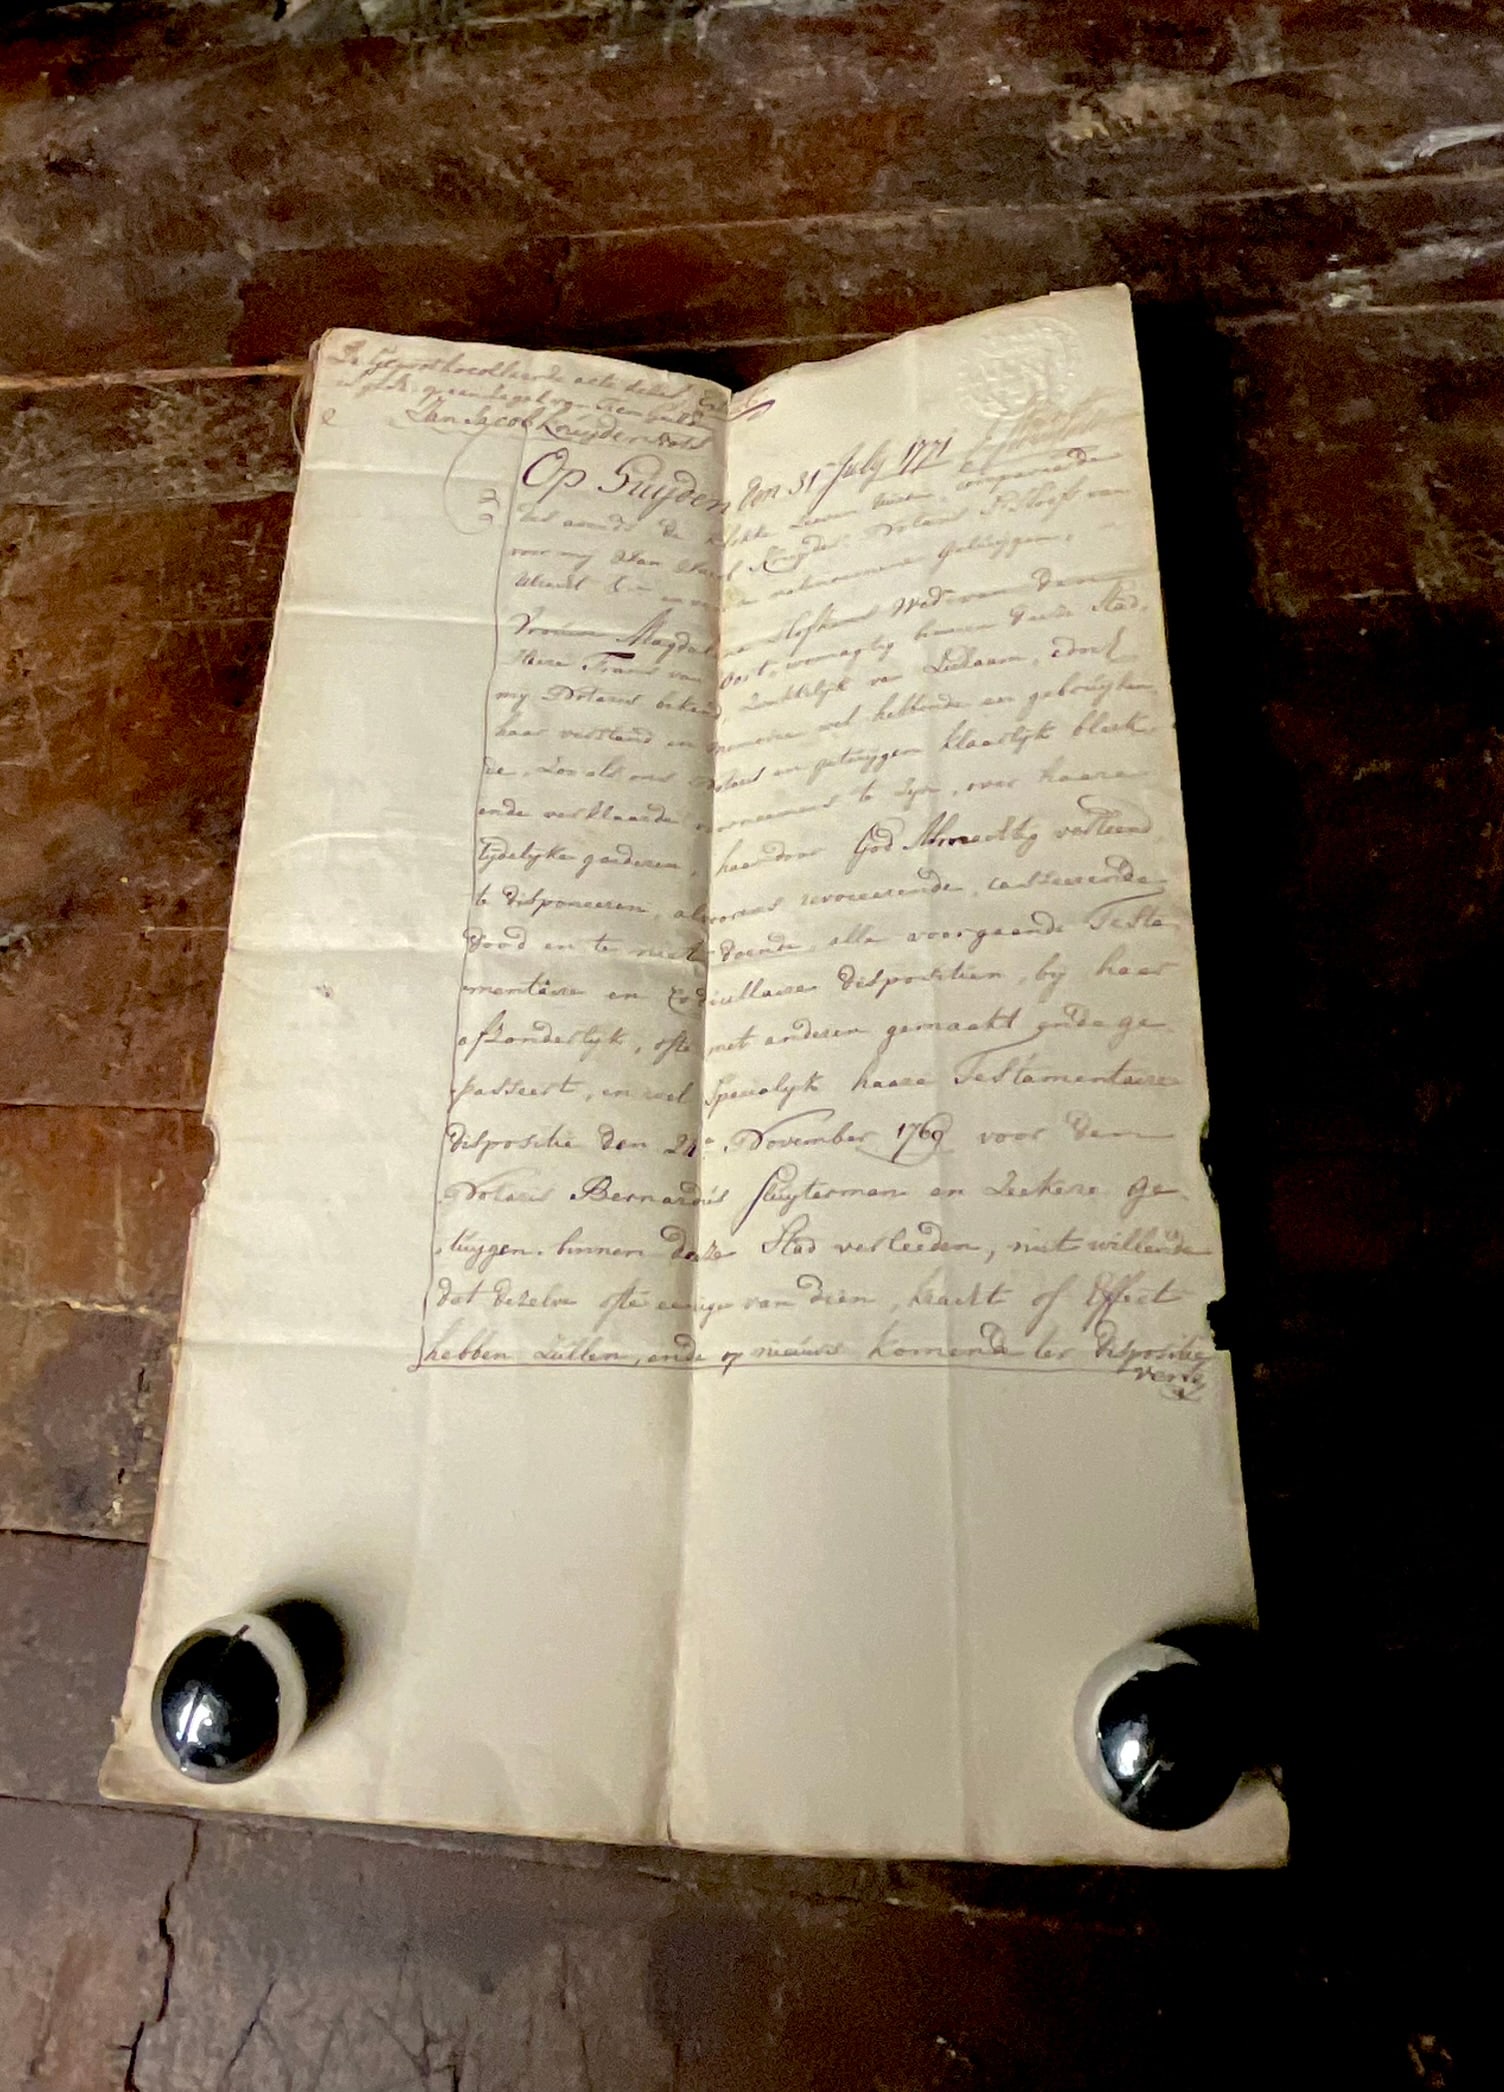 De Geprothocolleerde acte dezes
is
Jan Jacob Kruyder Nots
Op Huyden den 31 July 1771
des avonds de klokke zeeven uuren, compareerde
voor my Jan Jacob Kruyder Notaris 's Hoofs van
Utrecht &c en naarn getuygen,
Vrouwe Magdalena Wedwe van den
Heere Frans van Oort, woonagtig binnen deeze Stad,
my Notaris bekend, Ziekkelijk van Lichaam, edoch
haar verstand en memorie wel hebbende en gebruyken
de, Zoo als ons Notaris en getuygen klaarlyk bleek,
ende verklaarde voorneemens te Zyn, over haare
tydelyke goederen, haar door God Almachtig verleend,
te disponeeren, alvoorens revoceerende, casseerende
dood en te niet doende, alle voorgaande Testa
mentaire en Codicillaire dispositien, by haar
afzonderlyk, ofte met anderen gemaakt ende ge
passeert, en wel specialyk haare Testamentaire
dispositie den 24e November 1769 voor den
Notaris Bernardus Sluyterman en Zeekere ge
tuygen binnen deeze Stad verleeden, niet willende
dat dezelve ofte eenige van dien, kracht of Effect
hebben Zullen, ende op nieuws komende ter dispositie
verte